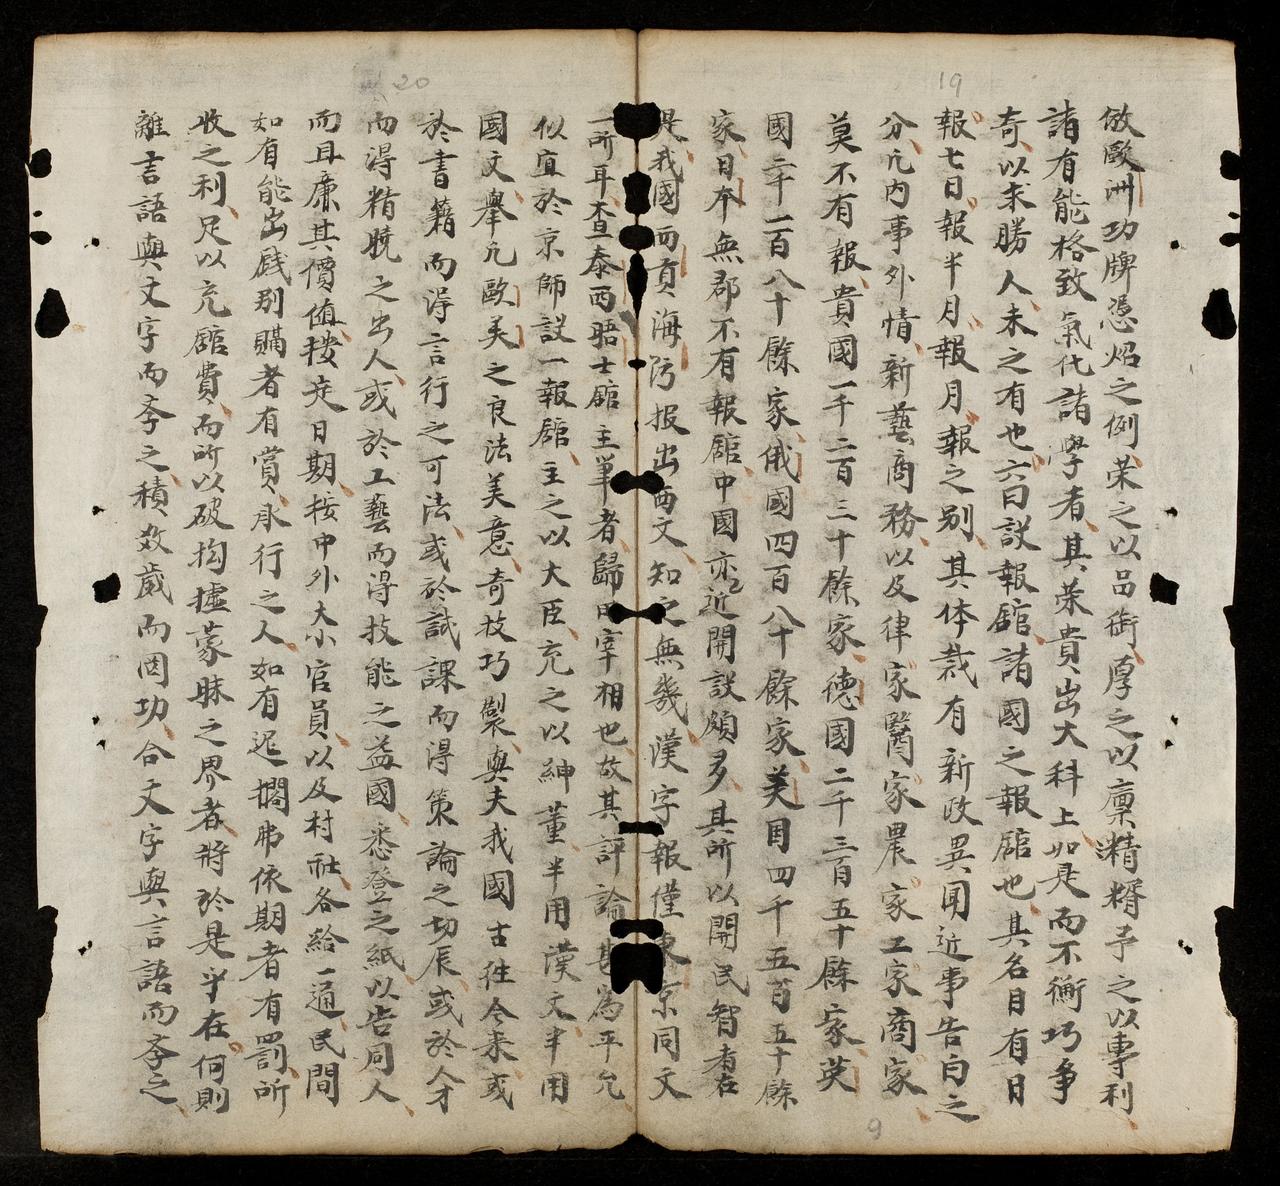 19
倣歐洲功牌憑炤之例荣之以品銜厚之以廪精糈予之以專利
諸有能格致氣化諸學者其荣貴出大科上如是而不衕巧争
奇以求勝人未之有也六曰設報舘諸國之報舘也其名目有日
報七日報半月報月報之别其体裁有新政異聞近事告白之
分凢内事外情新藝商務以及律家醫家農家工家商家
莫不有報貴國一千二百三十餘家德國二千三百五十餘家英
國二千一百八十餘家俄國四百八十餘家美囯四千五百五十餘
家日本無郡不有報舘中國亦近開設頗多其所以開民智者在
是我國而貢海防报出西文知之無幾漢字報僅東京同文
9
20
一所耳查泰西晤士舘主筆者歸田宰相也故其評論甚為平允
似宜於京師設一報舘主之以大臣充之以紳董半用漢文半用
國文舉凢歐美之良法美意奇技巧製與夫我國古徃今来或
於書籍而淂言行之可法或於試課而淂策論之切辰或於人才
而淂精曉之出人或於工藝而淂技能之益國悉登之紙以告同人
而且廉其價值 定日期接中外大小官員以及村社各給一通民間
如有能出戲别購者有賞承行之人如有迟擱弗依期者有罰所
收之利足以充舘費而所以破拘墟蒙昧之界者將於是乎在何則
離言語與文字而斈之積效歲而因功合文字與言語而斈之